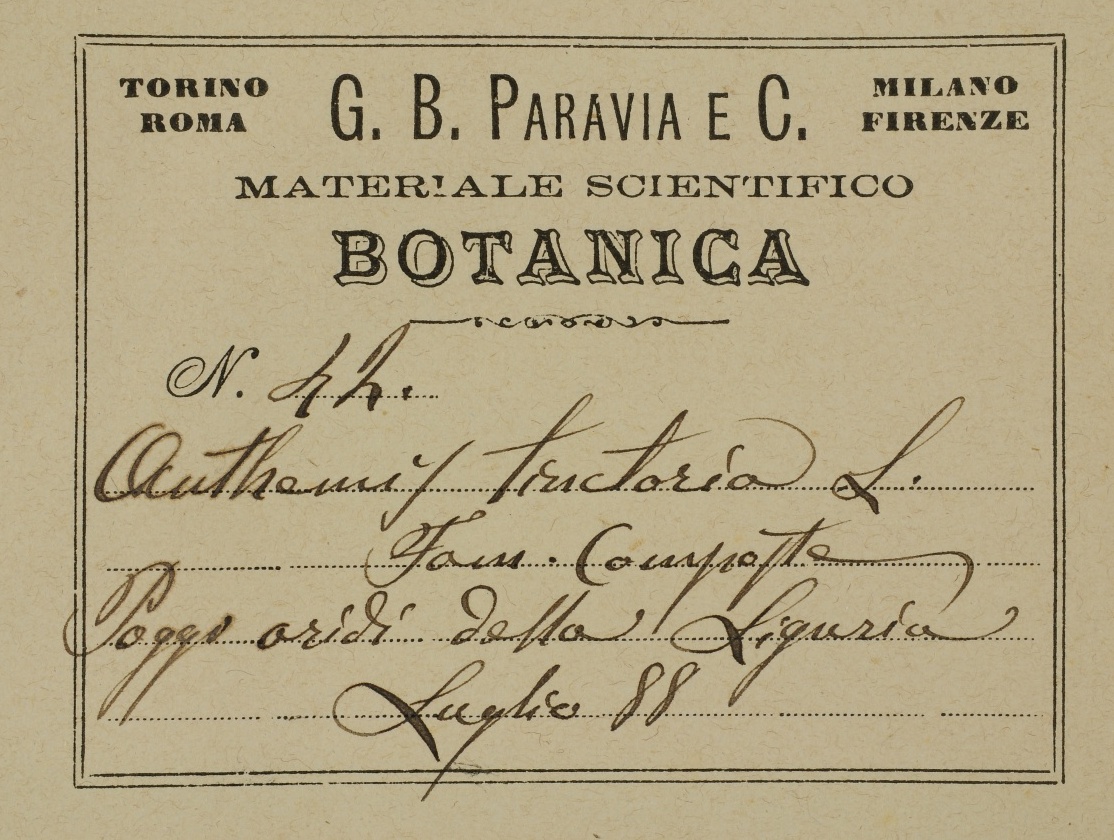 TORINO ROMA G. B. PARAVIA E C. MILANO FIRENZE
MATERIALE SCIENTIFICO
BOTANICA
N. 42.
Anthemis tinctoria L.
Fam. Composte
Poggi aridi della Liguria
Luglio 88